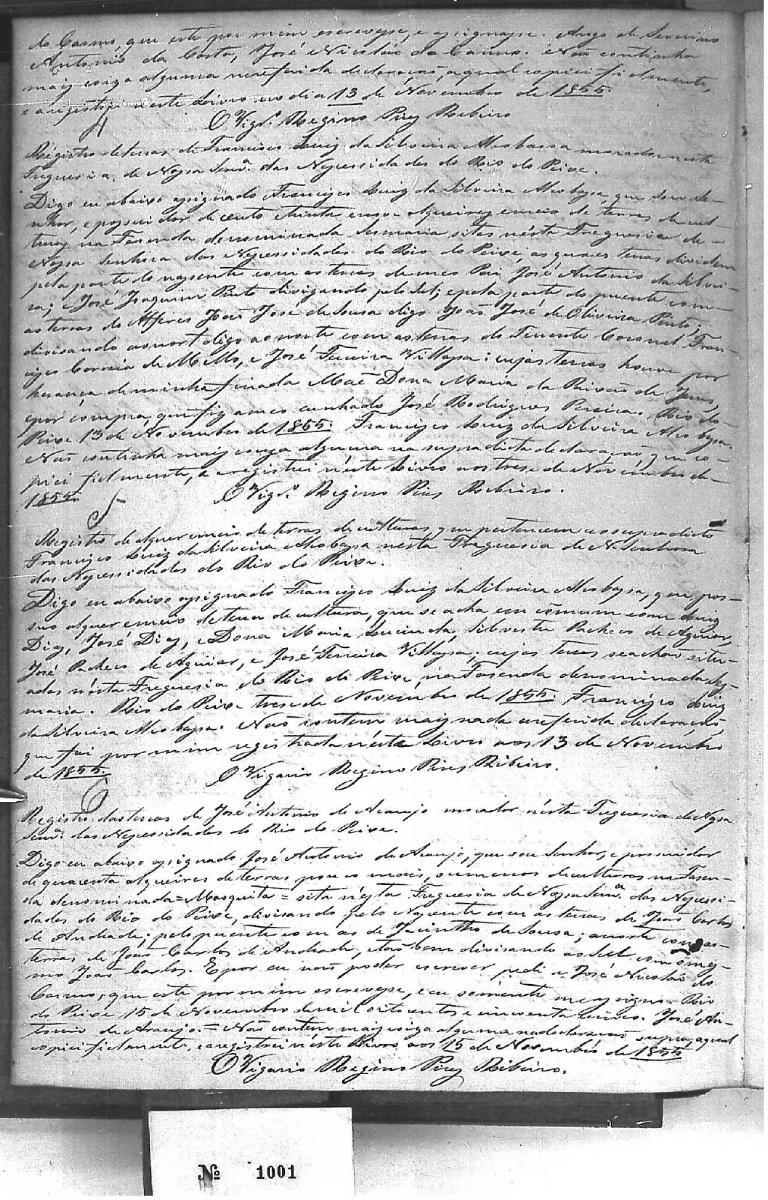 do Carmo, que este por mim escrevesse, e assignasse. Arogo de Severino
Antonio da Costa, José Nicoláo do Carmo. Não continha
mais coiza alguma na referida declaração, a qual copiei fielmente,
e aregistrei neste Livro no dia 13 de Novembro de 1855.
O Vigr.º Regino Pires Ribeiro
4
Registro de terras de Francisco Luiz da Silveira morador nesta
Freguesia de Nossa Senr.ª das Necessidades do Rio do Peixe.
Digo eu abaixo assignado Francisco Luiz da Silveira que sou Se-
nhor, e possuidor de cento e trinta e meio de terras de cul-
turas, na Fasenda denominada Sesmaria sitas nésta Freguesia de
Nossa Senhora das Necessidades do Rio do Peixe, as quaes terras dividem
pela parte do nascente com as terras de meo Pai José Antonio da Silvei-
ra, e José Joaquim Pinto divizando pelo Sul; e pela parte do puente com
as terras do Alferes João José de Sousa digo João José de Oliveira Pinto,
divisando ao digo ao norte com as terras do Tenente Coronel Fran-
cisco Correia de Mello, e José Ferreira Villaça: cujas terras houve por
herança de minha finada Mãe Dona Maria da de Jesus,
e por compra, que fiz a meo cunhado José Rodrigues Pereira. Rio do
Peixe 13 de Novembro de 1855. Francisco Luiz da Silveira
Não continha mais coiza alguma na supradita declaração que co-
piei fielmente, e aregistrei néste Livro aos trese de Novembro de
1855.
O Vigr.º Regino Pires Ribeiro.
5
Registro de alquer e meio de terras de culturas, que pertencem ao supradicto
Francisco Luiz da Silveira nesta Freguesia de N. Senhora
das Necessidades do Rio do Peixe.
Digo eu abaixo assignado Francisco Luiz da Silveira, que pos-
suo alquer e meio de terra de cultura, que se acha em cómum com Luiz
Dias, José Dias, e Dona Maria Lucinda, Silvestre Pacheco de Aguiar,
José Pacheco de Aguiar, e José Ferreira Villaça; cujas terras se achão situ-
adas nésta Freguesia do Rio do Peixe, na Fasenda denominada Ses-
maria. Rio do Peixe trese de Novembro de 1855. Francisco Luiz
da Silveira. Não contem mais nada a referida declaração,
que foi por mim registrada néste Livro aos 13 de Novembro
de 1855.
O Vigario Regino Pires Ribeiro.
6
Registro das terras de José Antonio de Araujo morador nésta Freguesia de Nossa
Senr.ª das Necessidades do Rio do Peixe.
Digo eu abaixo assignado José Antonio de Araujo, que sou Senhor, e possuidor
de quarenta alqueires de terras pouco mais, ou menos de culturas na Fasen-
da denominada = Mosquita = sita nésta Freguesia de Nossa Senr.ª das Necessi-
dades do Rio do Peixe, divisando pelo Nascente com as terras de João Carlos
de Andrade; pelo puente com as de Jacintho de Sousa; ao norte com as
terras de João Carlos de Andrade, e tão bem divisando ao Sul com o mes-
mo João Carlos. E por eu não poder escrever pedi a José Nicoláo do
Carmo, que este por mim escrevesse, e eu sómente me assigno. Rio
do Peixe 15 de Novembro de mil oito centos e cincoenta e cinco. José An-
tonio de Araujo. = Não contem mais coiza alguma na declaração supra, a qual
copiei fielmente, e aregistrei néste Livro aos 15 de Novembro de 1855.
O Vigario Regino Pires Ribeiro.
Nº 1001